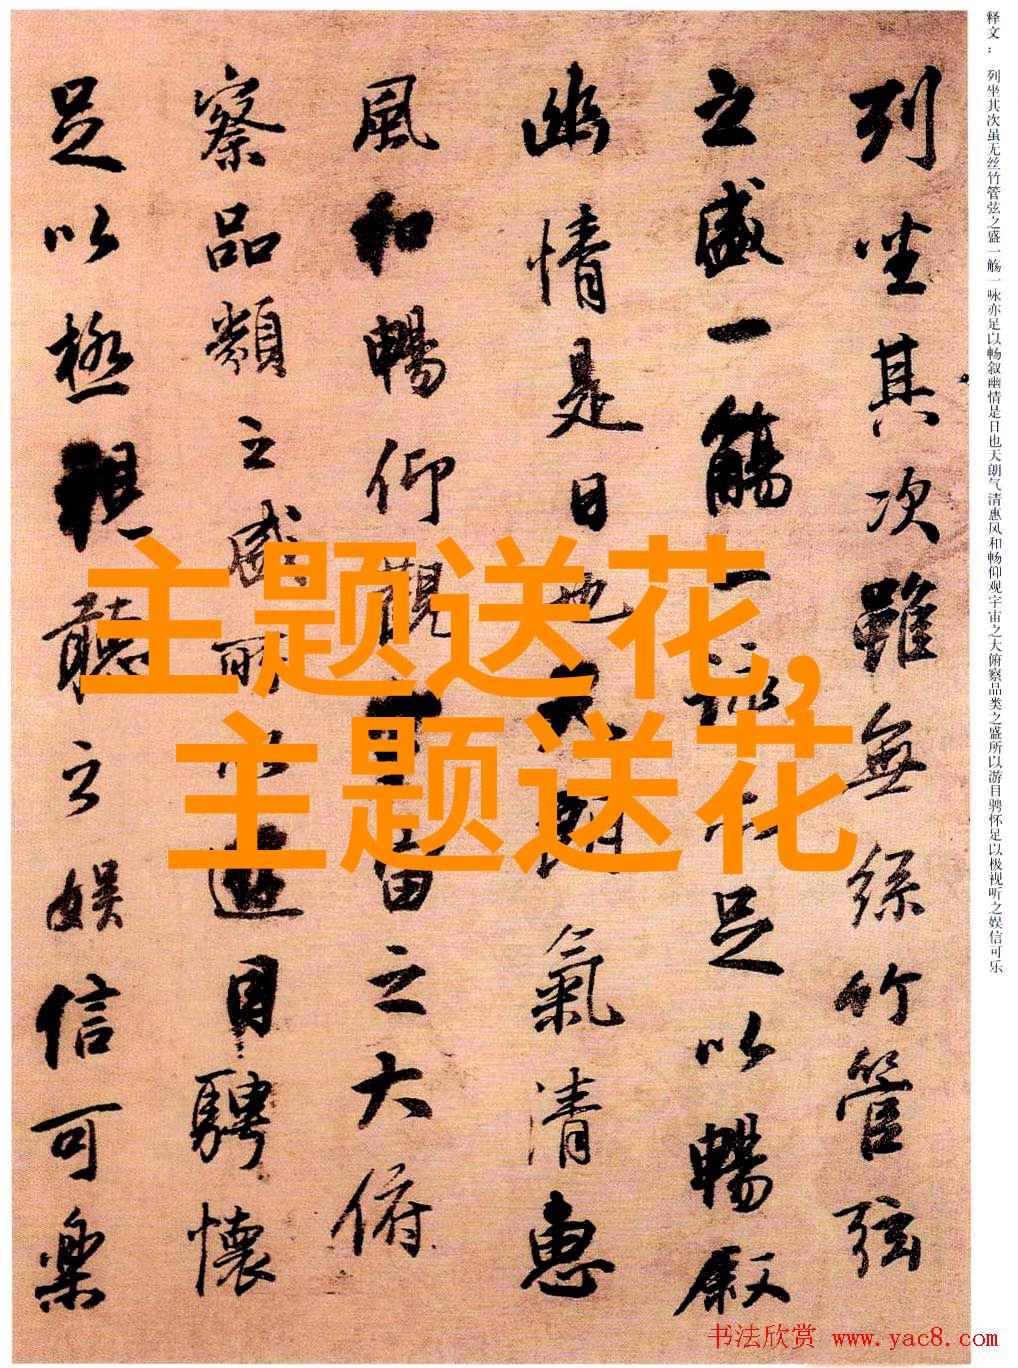 释文：列坐其次虽无丝竹管弦之盛一觞一咏亦足以畅叙幽情是日也天朗气清惠风和畅仰观宇宙之大俯察品类之盛所以游目骋怀足以极视听之娱信可乐
列坐其次雖無絲竹管弦
之盛一觴一詠亦足以暢叙
幽情是日也天朗氣清惠
風和暢仰觀宇宙之大俯
察品類之盛所以遊目騁懷
足以極視聽之娛信可樂
主题送花,
主题送花
书法欣赏 www.yac8.com